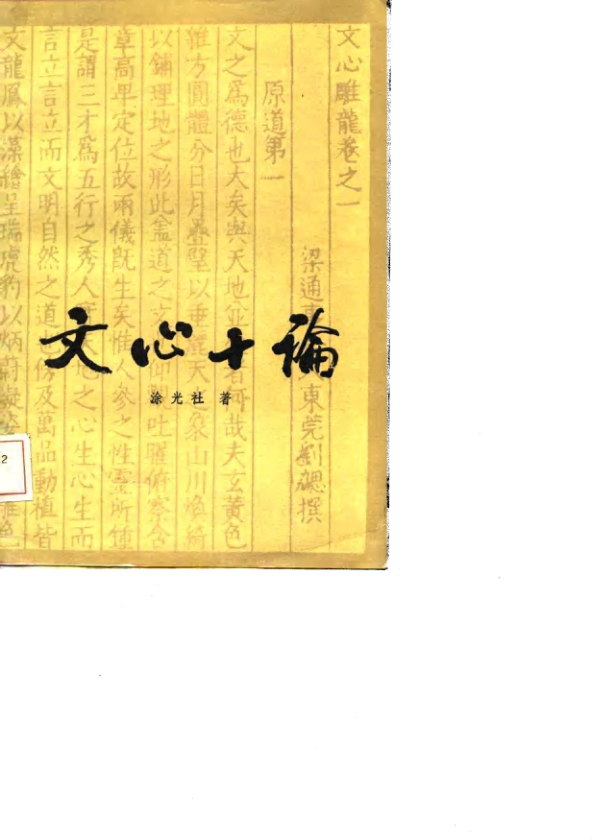 文心十论
涂光社 著
文心雕龍卷之一
梁通 東莞劉勰撰
原道第一
文之爲德也大矣與天地 者何哉夫玄黃色
雜方圓體分日月疊璧以垂 天之象山川煥綺
以鋪理地之形此蓋道之文 吐曜俯察含
章高卑定位故兩儀既生矣惟人參之性靈所鍾
是謂三才爲五行之秀人 地之心生心生而
言立言立而文明自然之道也傍及萬品動植皆
文龍鳳以藻繪呈瑞虎豹以炳蔚凝 色
2